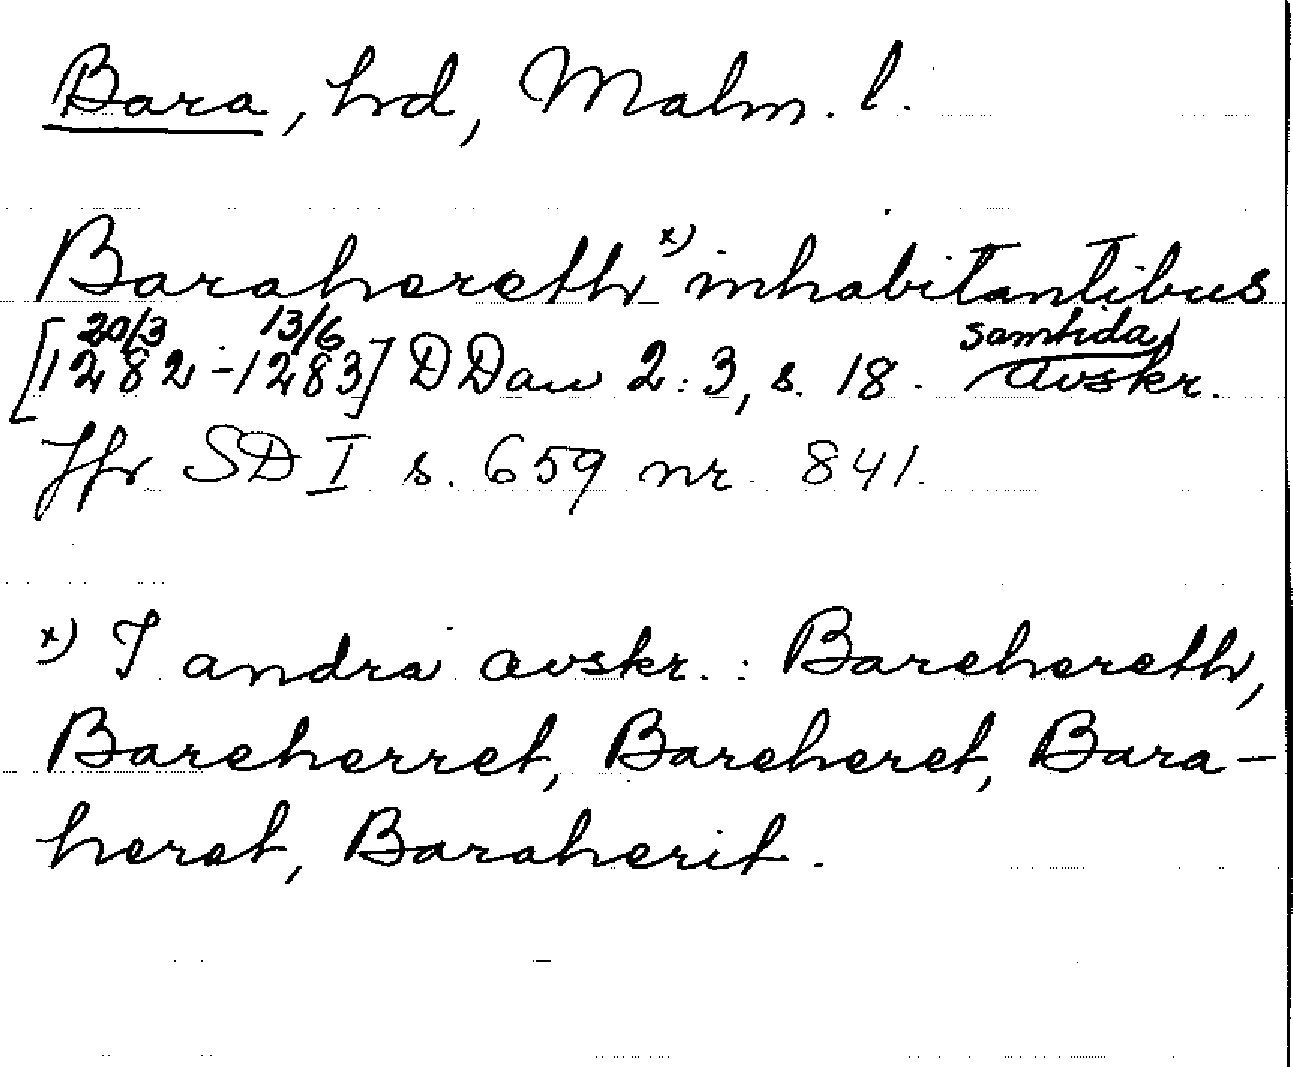 Bara, hd, Malm. l.
Barahereth x) inhabitantibus
[20/3 1282 - 13/6 1283] DDan 2:3, s. 18. samtida avskr.
Jfr SD I s. 659 nr 841.
x) I andra avskr.: Barehereth,
Bareherret, Bareheret, Bara-
heret, Baraherit.